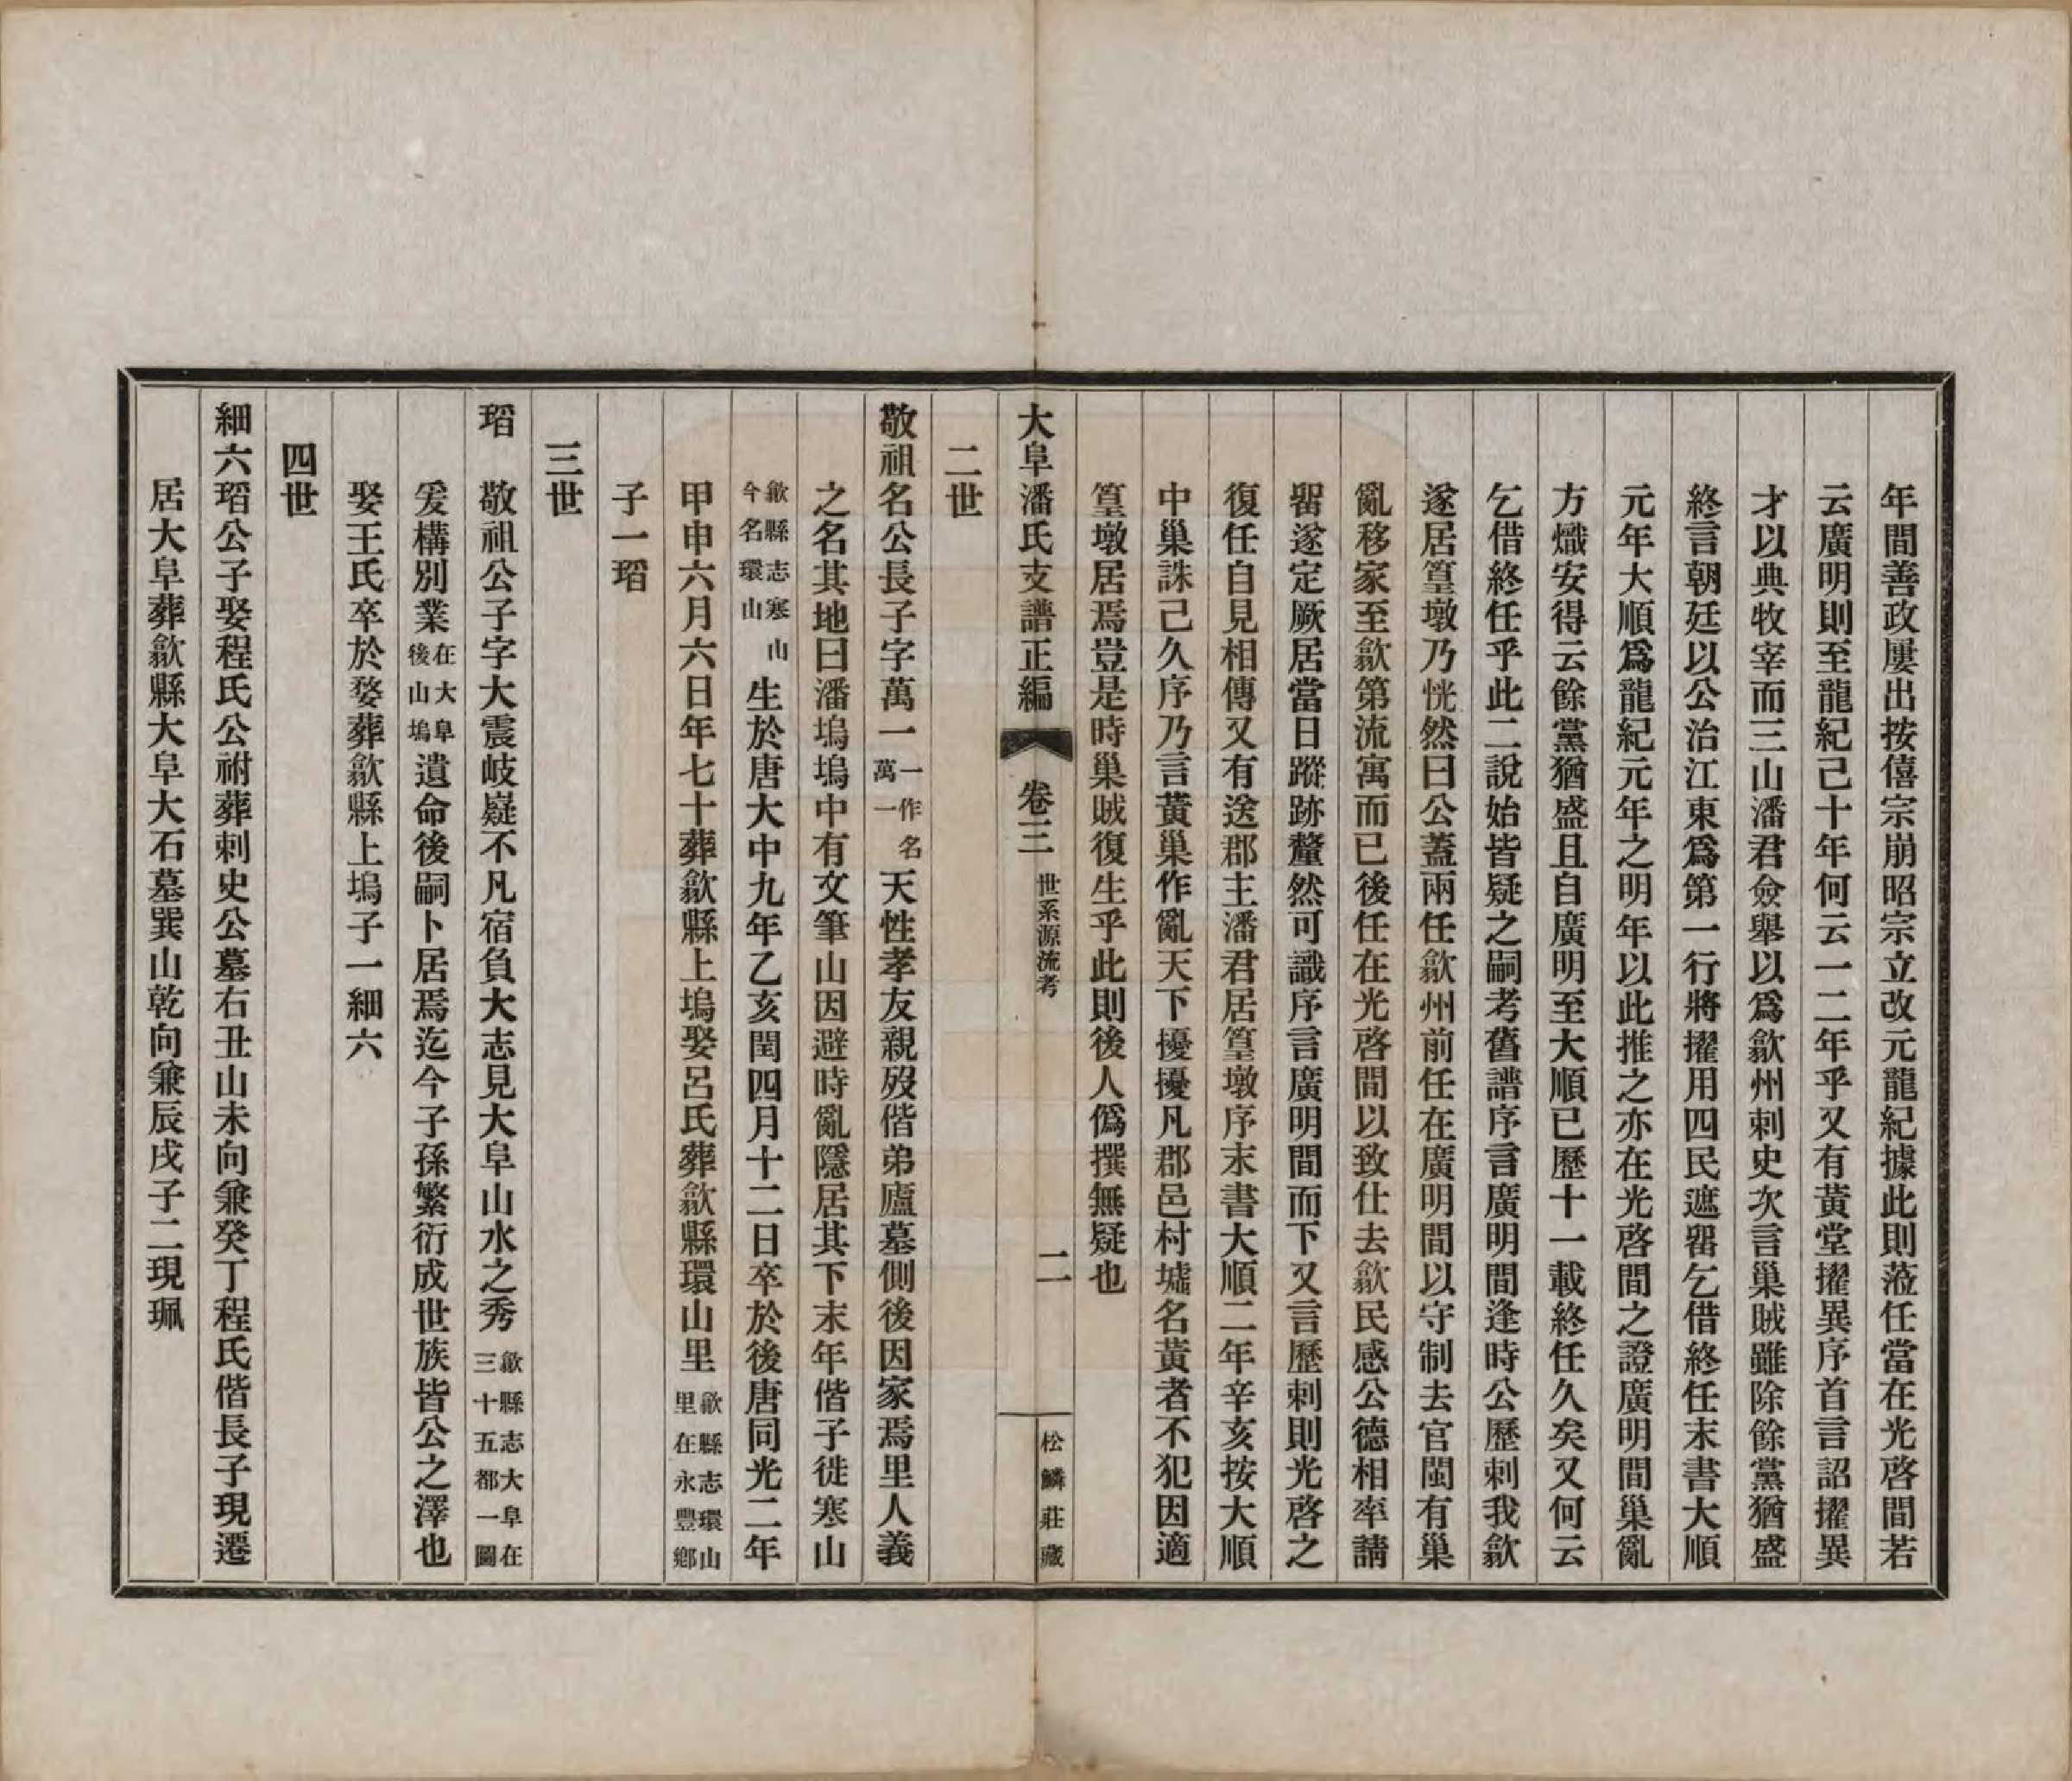 年間善政屢出按僖宗崩昭宗立改元龍紀據此則蒞任當在光啓間若
云廣明則至龍紀己十年何云一二年乎又有黃堂擢異序首言詔擢異
才以典牧宰而三山潘君僉舉以爲歙州刺史次言巢賊雖除餘黨猶盛
終言朝廷以公治江東爲第一行將擢用四民遮畱乞借終任末書大順
元年大順爲龍紀元年之明年以此推之亦在光啓間之證廣明間巢亂
方熾安得云餘黨猶盛且自廣明至大順已歷十一載終任久矣又何云
乞借終任乎此二說始皆疑之嗣考舊譜序言廣明間逢時公歷刺我歙
遂居篁墩乃恍然曰公蓋兩任歙州前任在廣明間以守制去官閩有巢
亂移家至歙第流寓而已後任在光啓間以致仕去歙民感公德相率請
畱遂定厥居當日蹤跡釐然可識序言廣明間而下又言歷刺則光啓之
復任自見相傳又有送郡主潘君居篁墩序末書大順二年辛亥按大順
中巢誅己久序乃言黃巢作亂天下擾擾凡郡邑村墟名黃者不犯因適
篁墩居焉豈是時巢賊復生乎此則後人僞撰無疑也
大阜潘氏支譜正編 卷三 世系源流考 二 松鱗莊藏
二世
敬祖名公長子字萬一一作名萬一天性孝友親歿偕弟廬墓側後因家焉里人義
之名其地曰潘塢塢中有文筆山因避時亂隱居其下末年偕子徙寒山
歙縣志寒山今名環山生於唐大中九年乙亥閏四月十二日卒於後唐同光二年
甲申六月六日年七十葬歙縣上塢娶呂氏葬歙縣環山里歙縣志環山里在永豐鄉
子一瑫
三世
瑫 敬祖公子字大震岐嶷不凡宿負大志見大阜山水之秀歙縣志大阜在三十五都一圖
爰構別業在大阜後山塢遺命後嗣卜居焉迄今子孫繁衍成世族皆公之澤也
娶王氏卒於婺葬歙縣上塢子一細六
四世
細六瑫公子娶程氏公祔葬刺史公墓右丑山未向兼癸丁程氏偕長子現遷
居大阜葬歙縣大阜大石墓巽山乾向兼辰戌子二現珮